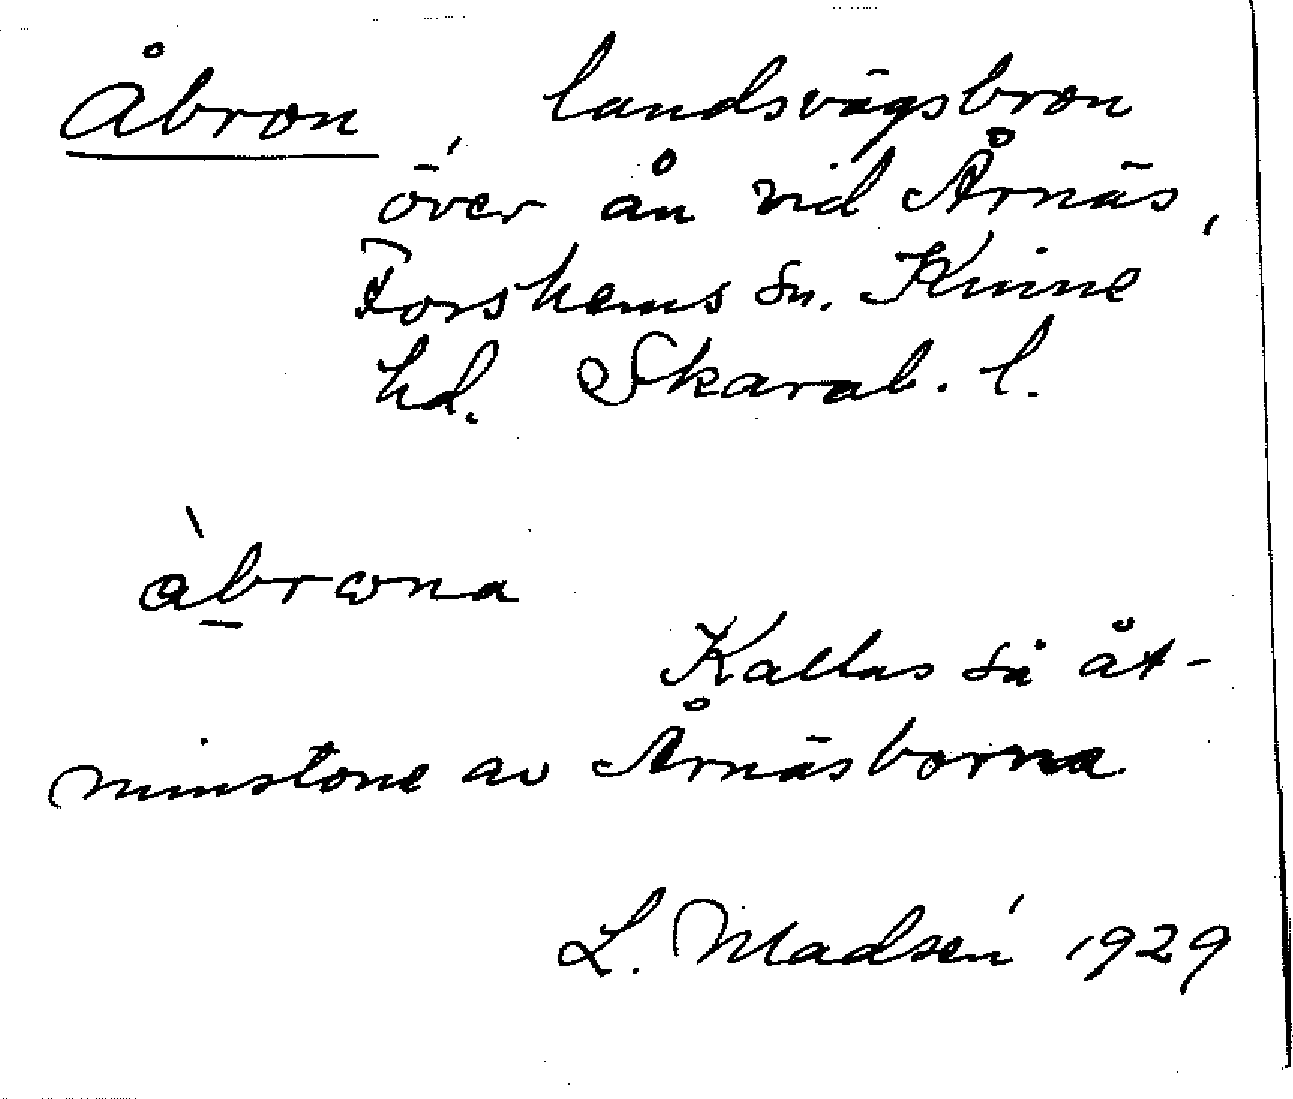 Åbron, landsvägsbron
över ån vid Årnäs,
Forshems sn. Kinne
hd. Skarab. l.
àbrωna
Kallas så åt-
minstone av Årnäsborna
L. Madsén 1929